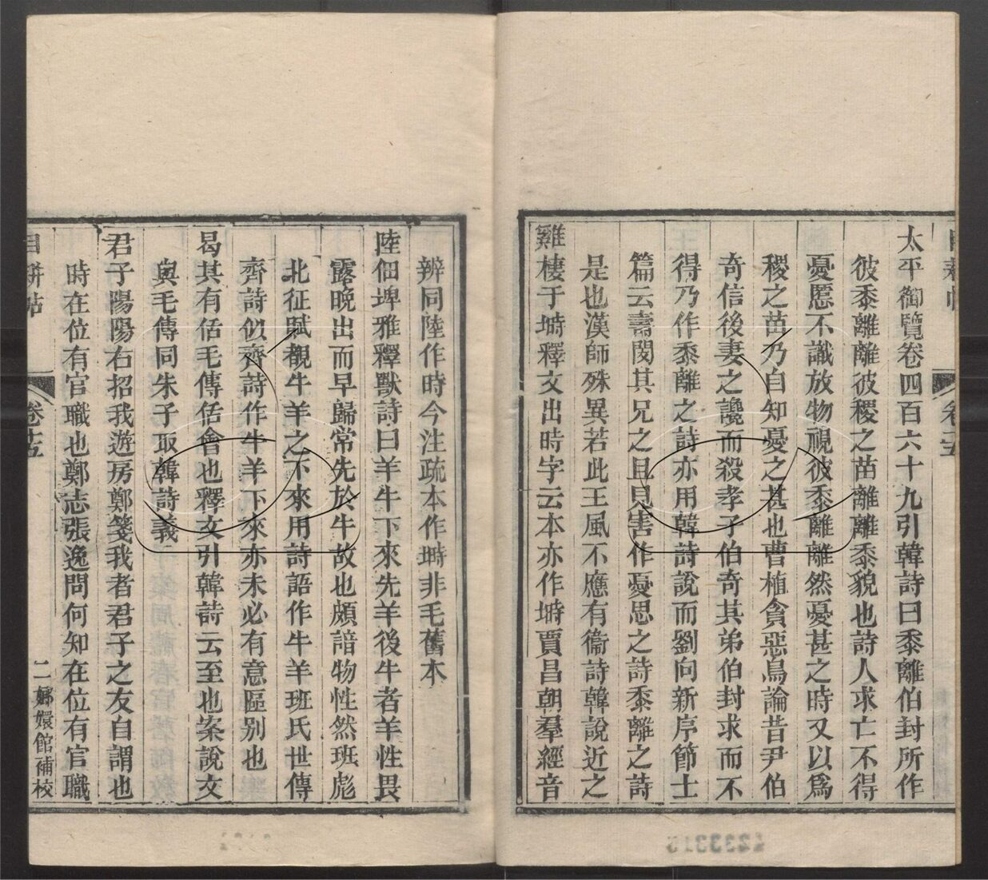 太平御覽卷四百六十九引韓詩曰黍離伯封所作
彼黍離離彼稷之苗離離黍貌也詩人求亡不得
憂懣不識於物視彼黍離離然憂甚之時又以爲
稷之苗乃自知憂之甚也曹植貪惡鳥論昔尹伯
奇信後妻之讒而殺孝子伯奇其弟伯封求而不
得乃作黍離之詩亦用韓詩說而劉向新序節士
篇云壽閔其兄之且見害作憂思之詩黍離之詩
是也漢師殊異若此王風不應有衞詩韓說近之
雞棲于塒釋文出時字云本亦作塒賈昌朝羣經音
辨同陸作時今注疏本作塒非毛舊本
陸佃埤雅釋獸詩曰羊牛下來先羊後牛者羊性畏
露晚出而早歸常先於牛故也頗諳物性然班彪
北征賦覩牛羊之下來用詩語作牛羊班氏世傳
齊詩似齊詩作牛羊下來亦未必有意區别也
曷其有佸毛傳佸會也釋文引韓詩云至也案說文
與毛傳同朱子取韓詩義
君子陽陽右招我遊房鄭箋我者君子之友自謂也
時在位有官職也鄭志張逸問何知在位有官職
目耕帖
卷十五
二
嫏嬛館補校